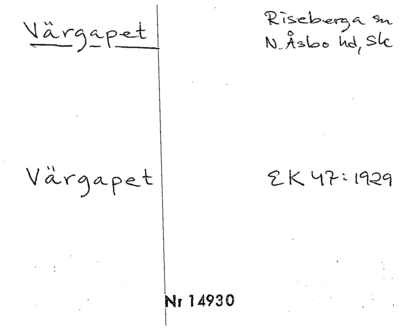 Värgapet
Riseberga sn
N. Åsbo hd, Sk
Värgapet
EK 47:1929
Nr 14930